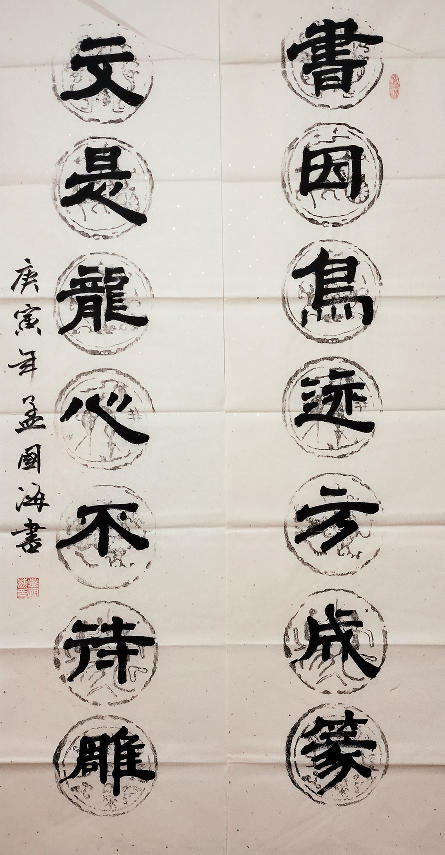 書因鳥迹方成篆
文是龍心不待雕
庚寅年孟國海書